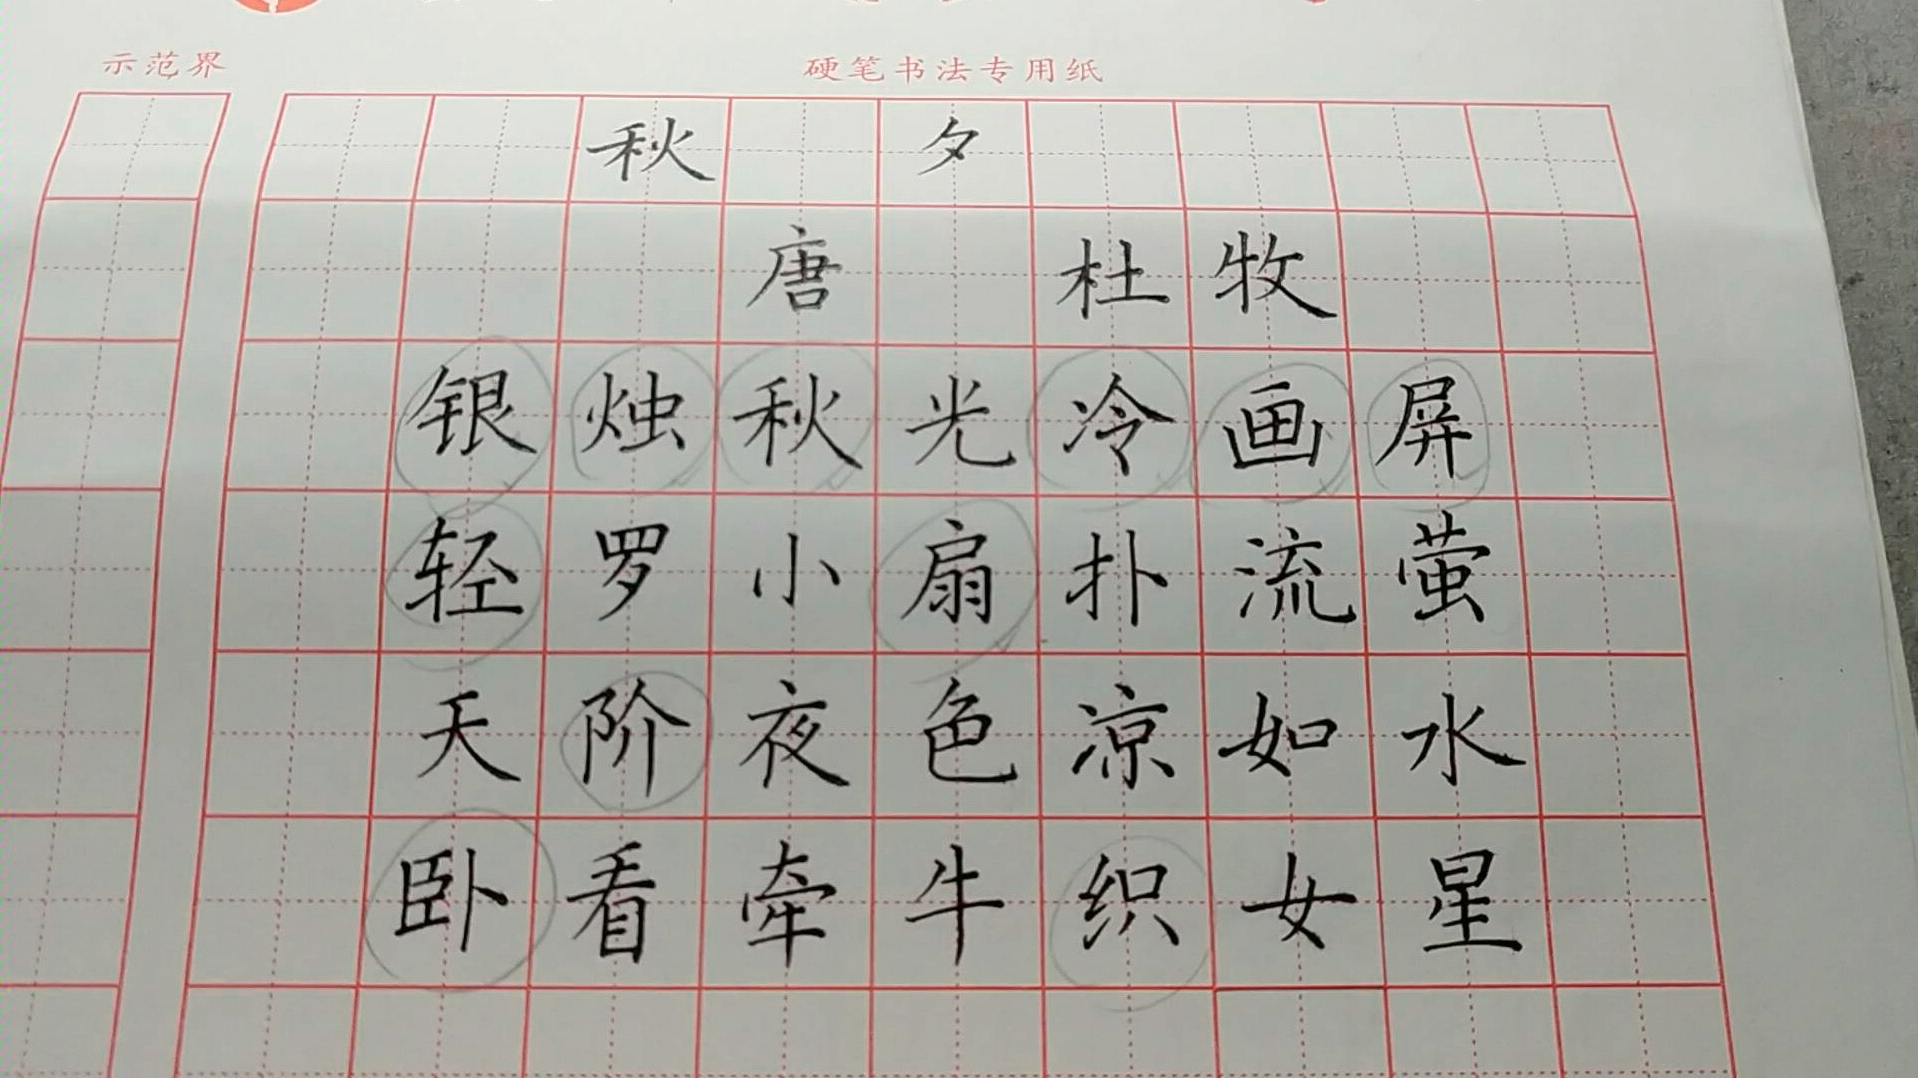 示范界
硬笔书法专用纸
秋 夕
唐 杜牧
银烛秋光冷画屏
轻罗小扇扑流萤
天阶夜色凉如水
卧看牵牛织女星